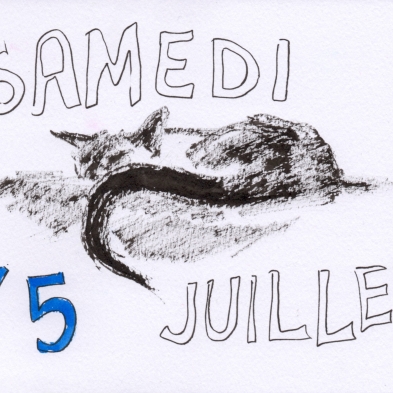 SAMEDI
5 JUILLE